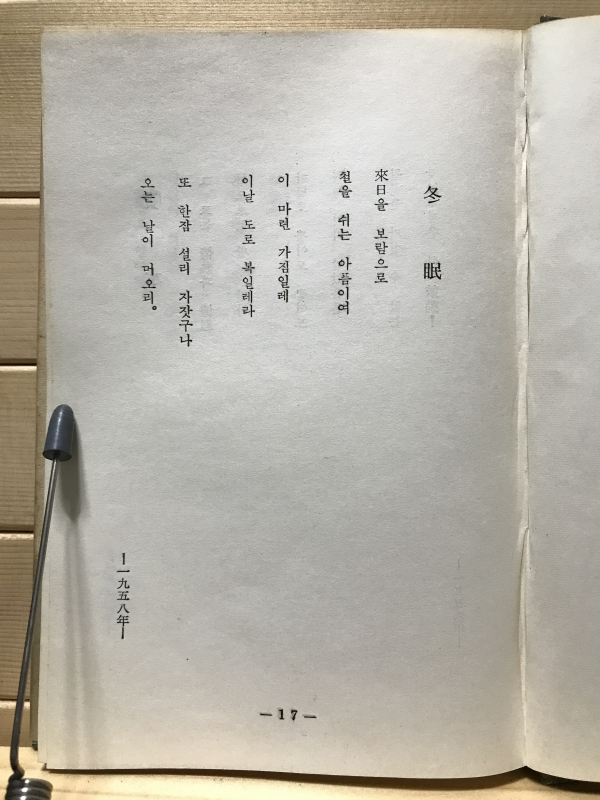 冬眠
來日을 보람으로
철을 쉬는 아픔이여
이 마련 가짐일레
이날 도로 복일레라
또 한잠 설리 자잣구나
오는 날이 머오리。
―一九五八年―
―17―